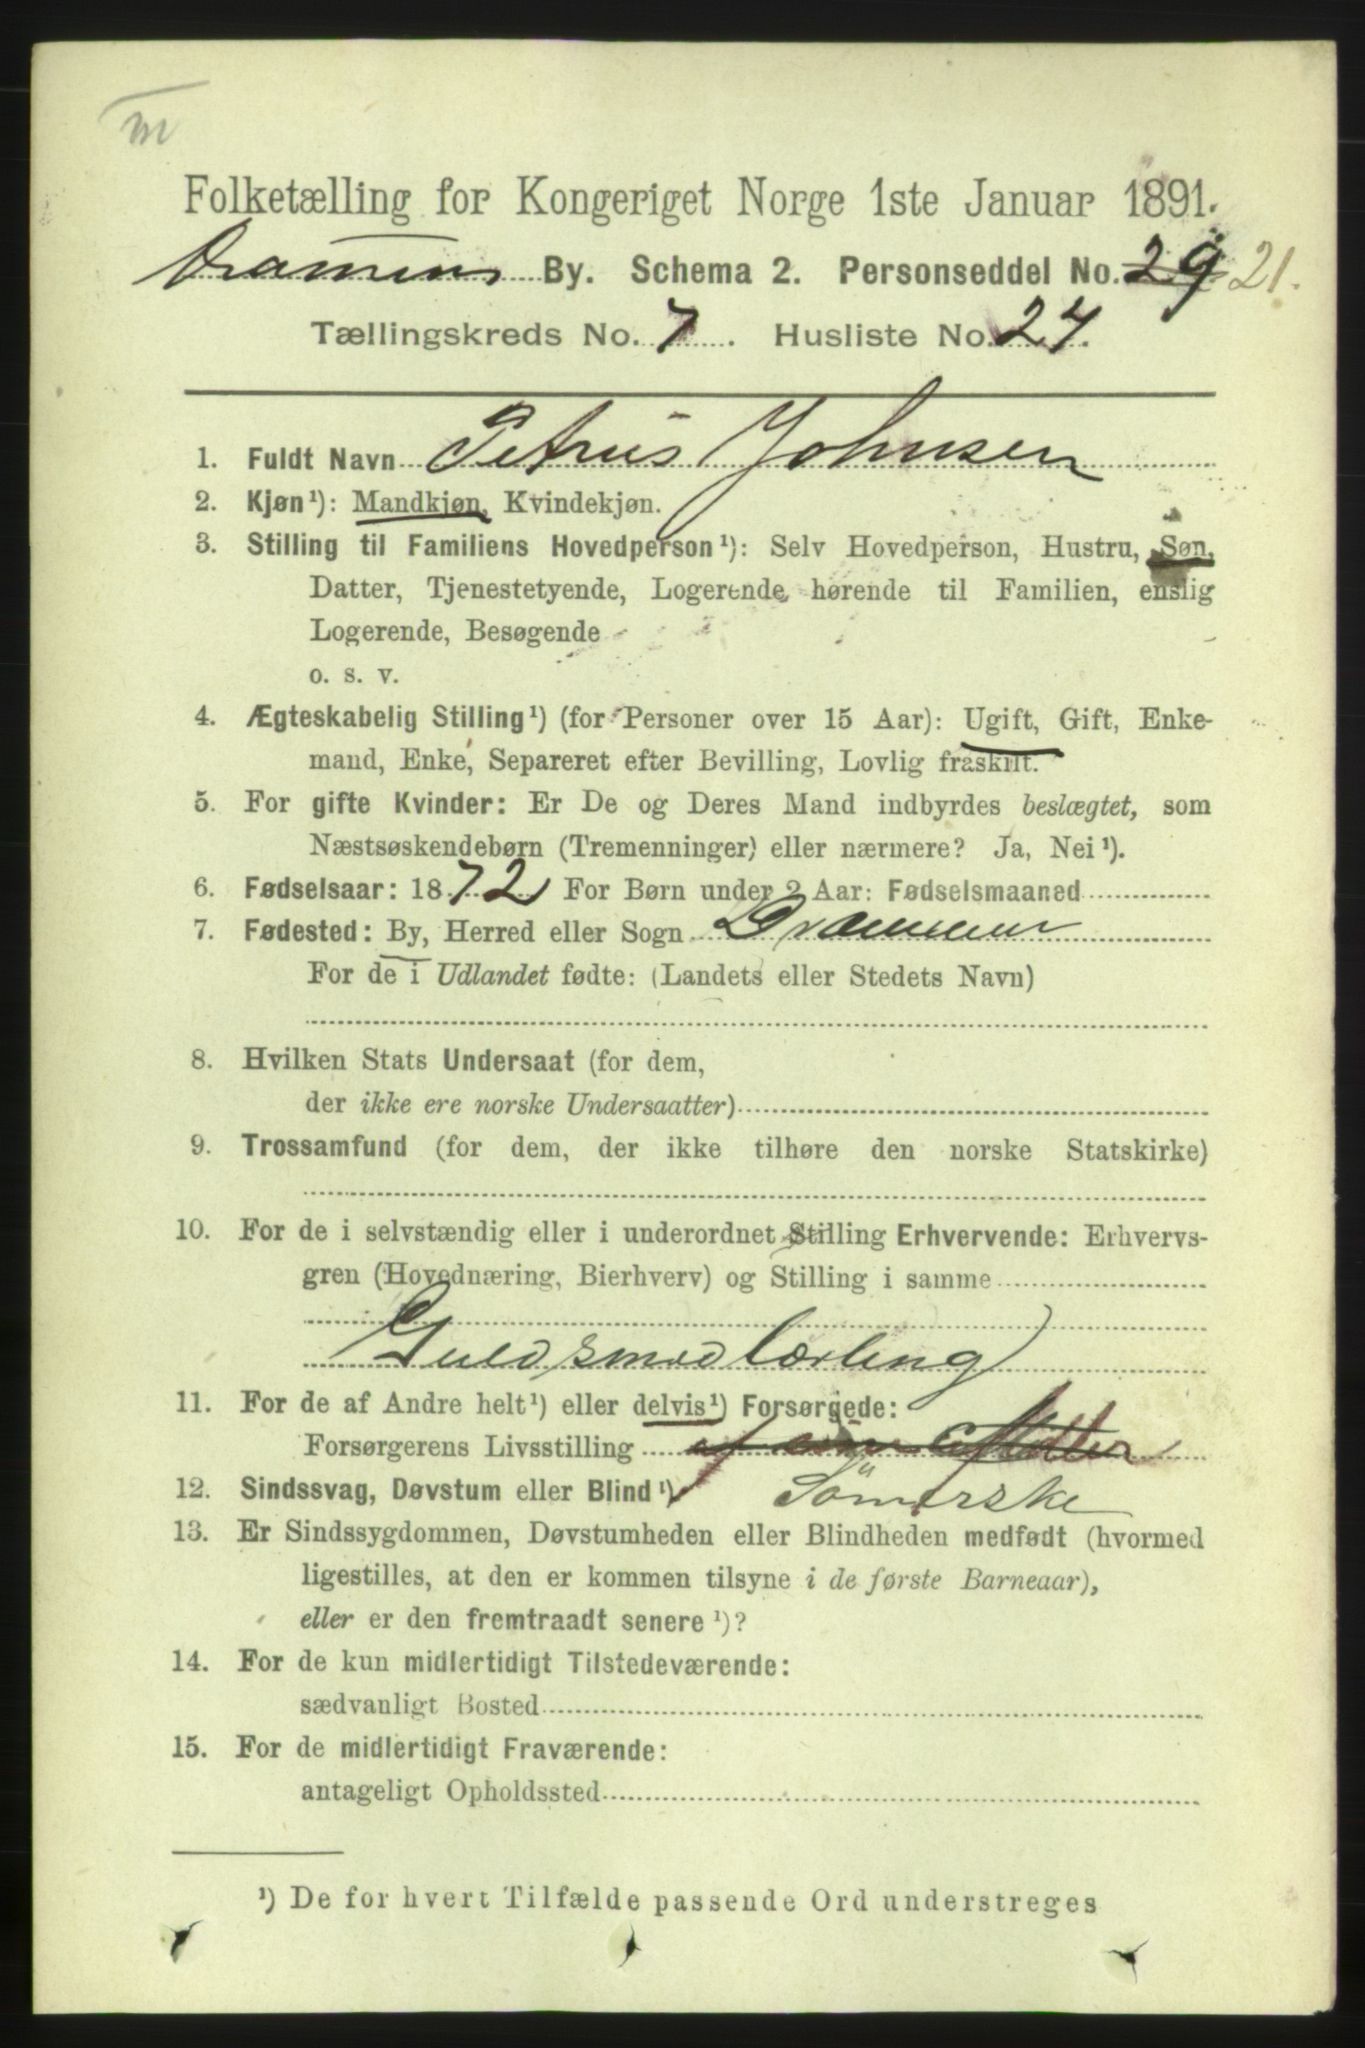 m
Folketælling for Kongeriget Norge 1ste Januar 1891.
Drammens By. Schema 2. Personseddel No. 29 21.
Tællingskreds No. 7. Husliste No. 27.
1. Fuldt Navn Petrus Johnsen
2. Kjøn¹): Mandkjøn, Kvindekjøn.
3. Stilling til Familiens Hovedperson¹): Selv Hovedperson, Hustru, Søn,
Datter, Tjenestetyende, Logerende hørende til Familien, enslig
Logerende, Besøgende
o. s. v.
4. Ægteskabelig Stilling¹) (for Personer over 15 Aar): Ugift, Gift, Enke-
mand, Enke, Separeret efter Bevilling, Lovlig fraskilt.
5. For gifte Kvinder: Er De og Deres Mand indbyrdes beslægtet, som
Næstsøskendebørn (Tremenninger) eller nærmere? Ja, Nei¹).
6. Fødselsaar: 1872 For Børn under 2 Aar: Fødselsmaaned
7. Fødested: By, Herred eller Sogn Drammen
For de i Udlandet fødte: (Landets eller Stedets Navn)
8. Hvilken Stats Undersaat (for dem,
der ikke ere norske Undersaatter)
9. Trossamfund (for dem, der ikke tilhøre den norske Statskirke)
10. For de i selvstændig eller i underordnet Stilling Erhvervende: Erhvervs-
gren (Hovednæring, Bierhverv) og Stilling i samme
Guldsmedlærling
11. For de af Andre helt¹) eller delvis¹) Forsørgede:
Forsørgerens Livsstilling af sine Moder
12. Sindssvag, Døvstum eller Blind¹) Sömerske
13. Er Sindssygdommen, Døvstumheden eller Blindheden medfødt (hvormed
ligestilles, at den er kommen tilsyne i de første Barneaar),
eller er den fremtraadt senere¹)?
14. For de kun midlertidigt Tilstedeværende:
sædvanligt Bosted
15. For de midlertidigt Fraværende:
antageligt Opholdssted
¹) De for hvert Tilfælde passende Ord understreges